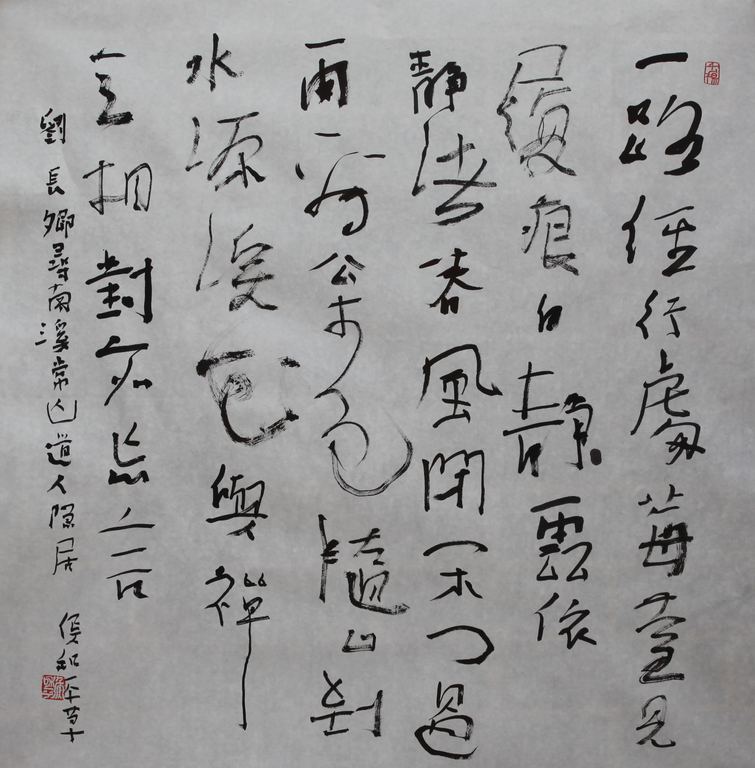 一路經行處莓苔見
履痕白靜雲依
靜渚春風閉閑門過
雨看松色隨山到
水源溪花與禪
意相對亦忘言
劉長卿尋南溪常山道人隱居
侯和平書